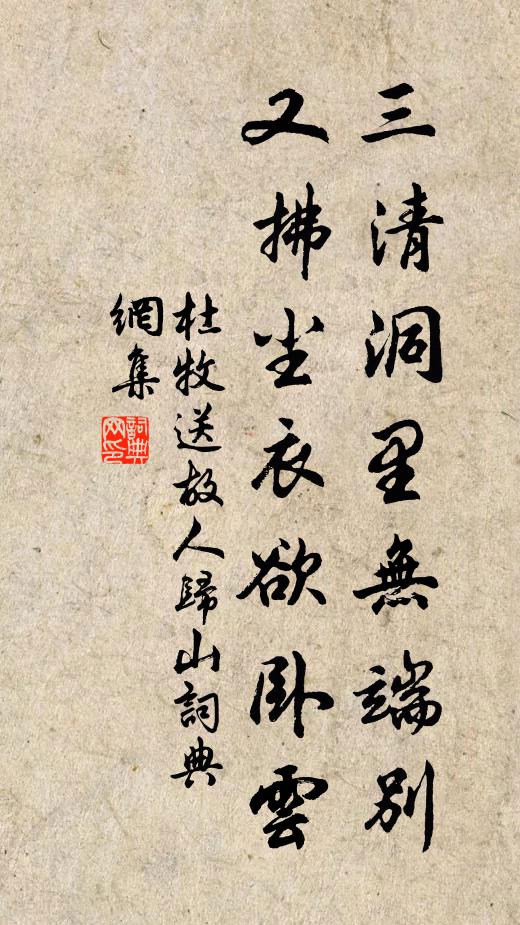 三清洞里無端別
又拂尘衣欲卧雲
杜牧送故人歸山詞典
網集
詞典
网印